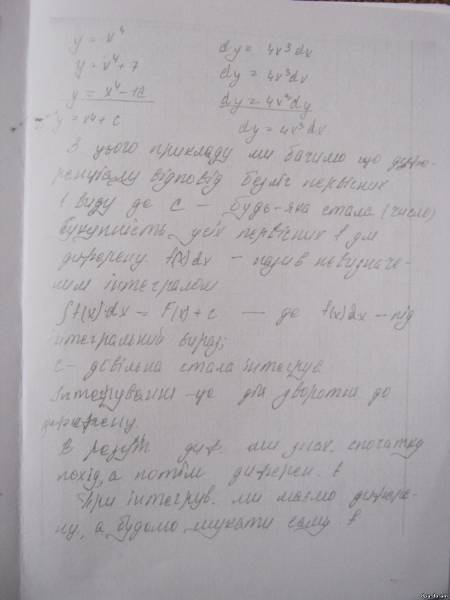 y = x⁴ dy = 4x³dx
y = x⁴+7 dy = 4x³dx
y = x⁴-12 dy = 4x³dy
y = x⁴+c dy = 4x³dx
З цього прикладу ми бачимо що дифе-
ренціалу відповід безліч первісних
1 виду де с – будь-яка стала (число)
усіх первісних для
диферен. f(x)dx – назив невизначе-
ним інтегралом
∫f(x)dx = F(x)+c — де f(x)dx – під
інтегральний вираз;
с – довільна стала інтегрув
Інтегруванні – це дія зворотня до
В диф. ми знах. спочатку
похід, а потім диферен. f
При інтегрув. ми маємо дифере-
а будемо шукати саму f